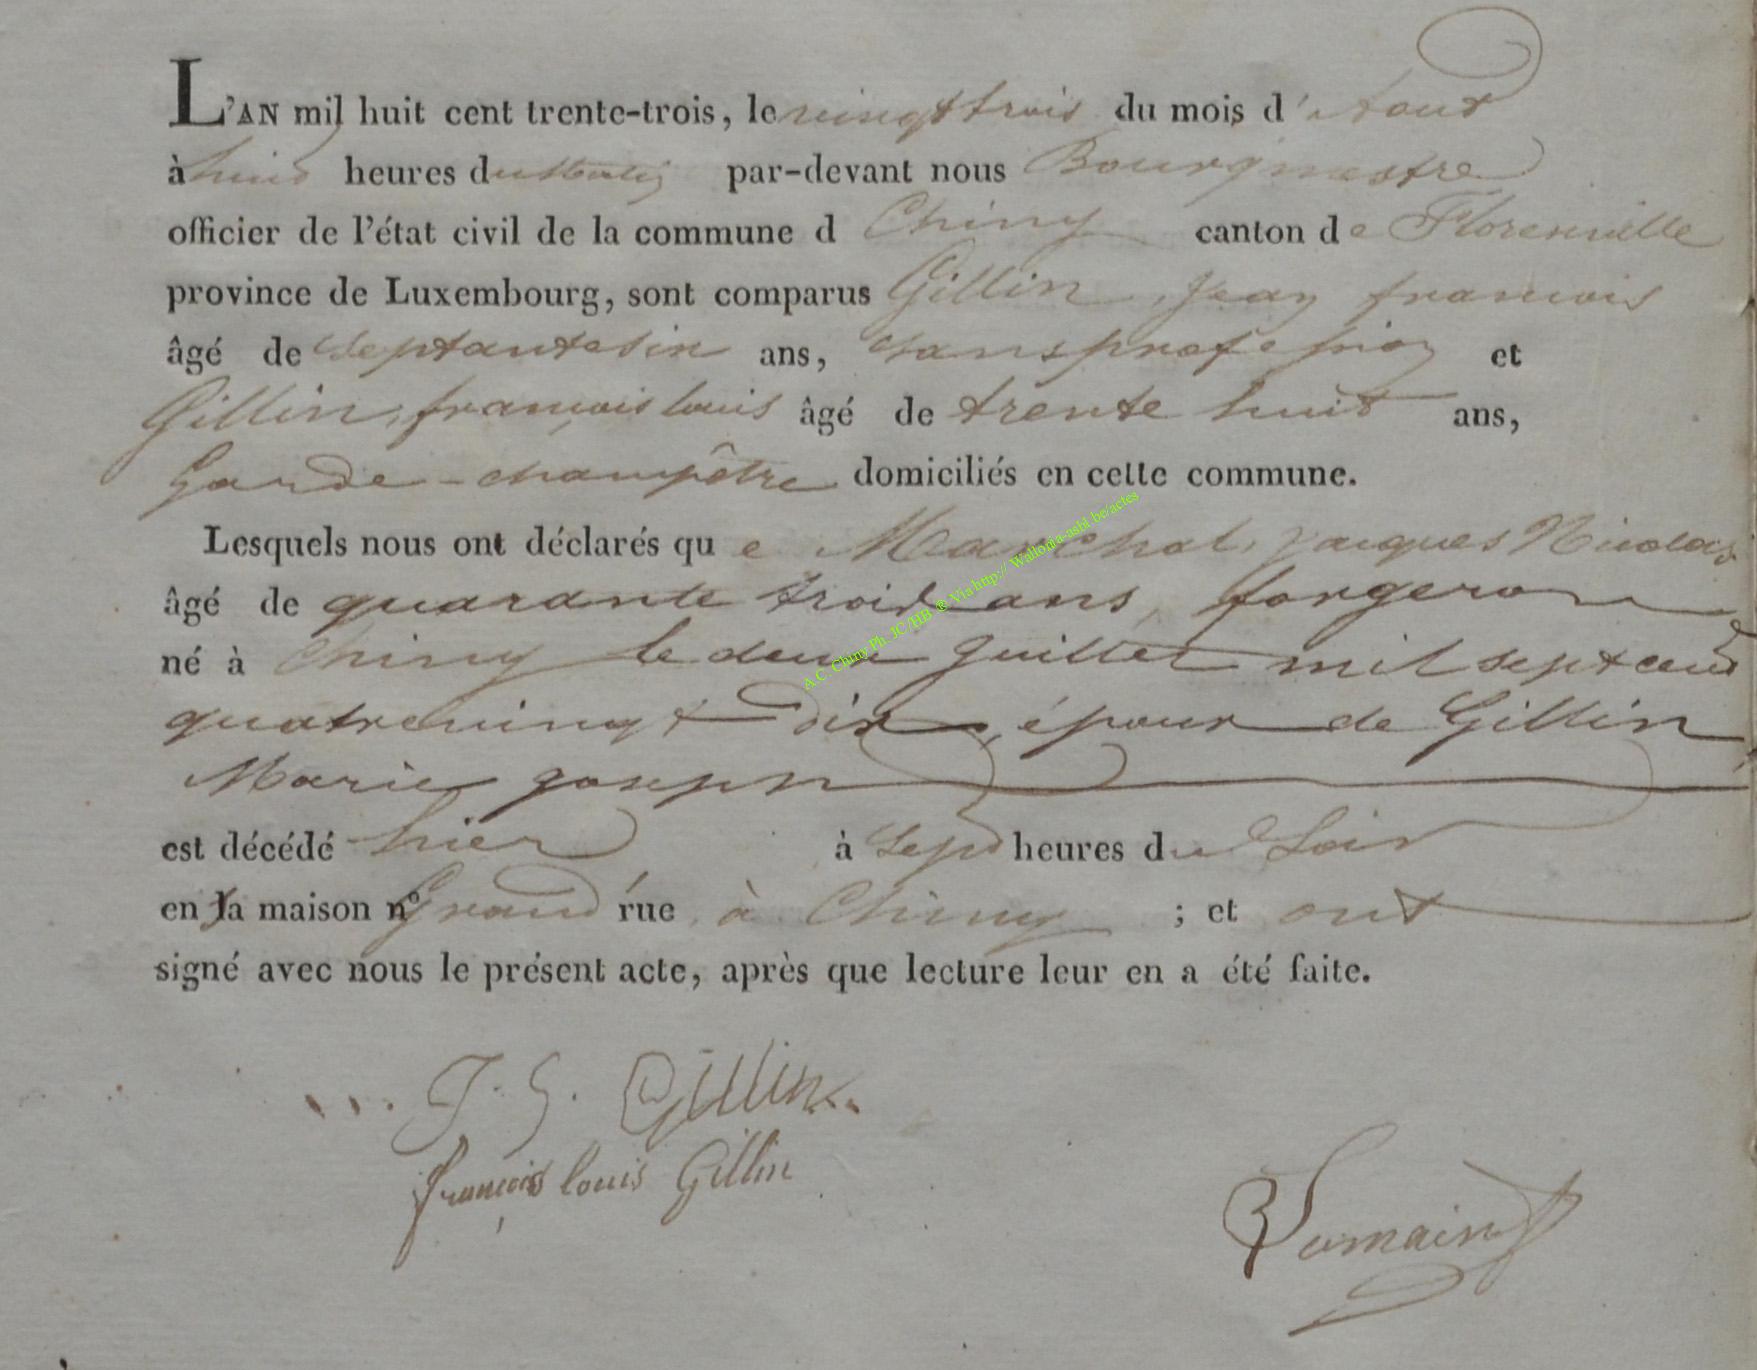 L'AN mil huit cent trente-trois, le vingt trois du mois d'Aout
à huit heures du Matin par-devant nous Bourgmestre
officier de l'état civil de la commune d Chiny canton de Florenville
province de Luxembourg, sont comparus Gillin, Jean francois
âgé de Septante six ans, sans profession et
Gillin, françois louis âgé de trente huit ans,
Garde-champêtre domiciliés en cette commune.
Lesquels nous ont déclarés que Marchal, jacques Nicolas
âgé de quarante trois ans, forgeron
né à Chiny le deux Juillet mil sept cent
quatre vingt dix, époux de Gillin,
Marie joseph
est décédé hier à Sept heures du Soir
en sa maison nº Grand'rue à Chiny ; et ont
signé avec nous le présent acte, après que lecture leur en a été faite.
J. f. Gillin
françois louis Gillin
A.C. Chiny Ph. JC/HB ® Via http:// Wallonia-asbl.be/actes